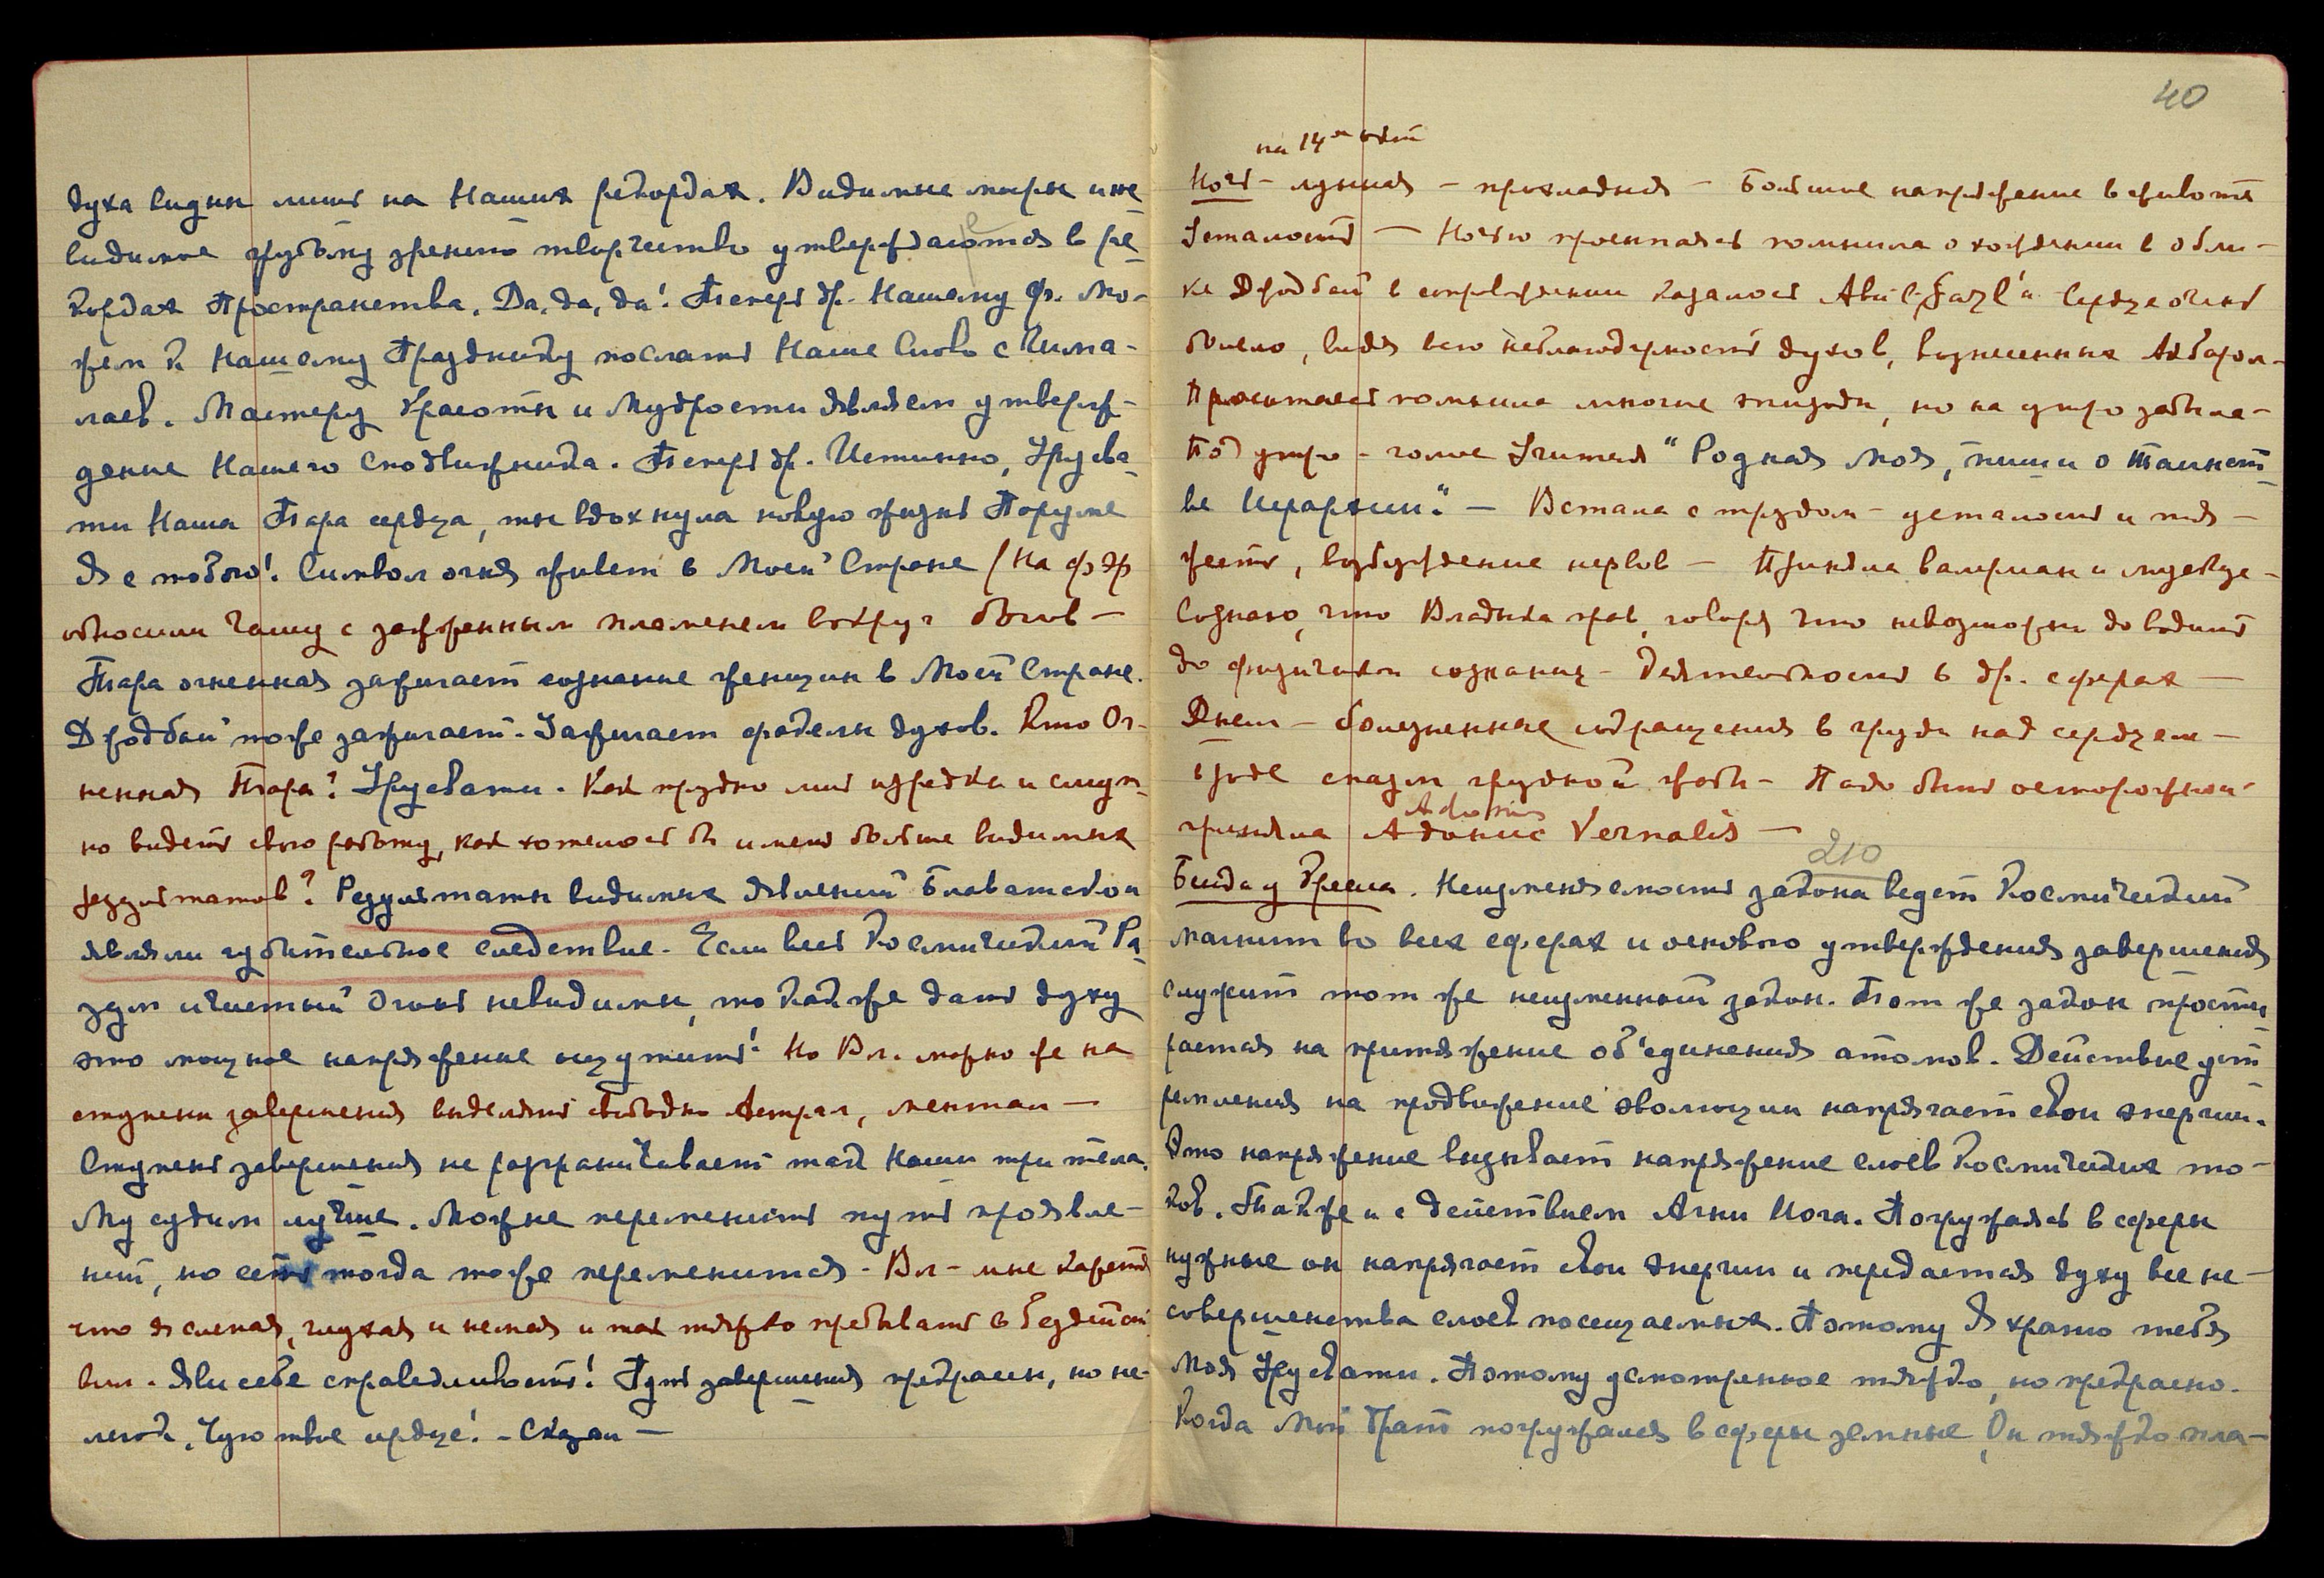 духа видны лишь на Наших рекордах. Видимые миры и не
видимое грубому зрению творчество утверждаются в ре
кордах Пространства. Да, да, да! Теперь др. Нашему Ф. Мо-
жем к Нашему Празднику послать Наше Слово с Гима-
лаев. Мастеру Красоты и Мудрости являем утверж-
дение Нашего Сподвижника. Теперь др. Истинно, Урусва
ти Наша Тара сердца, ты вдохнула новую жизнь Поруме
Я с тобою! Символ огня живет в Моей Стране (На
обносили чашу с зажженным пламенем вокруг
Тара огненная зажигает сознание женщин в Моей Стране.
Джодбай тоже зажигает. Зажигает факелы духов. Кто Ог-
ненная Тара? Урусвати. Как трудно лишь изредка и смут
но видеть свою работу, как хотелось бы иметь больше видимых
результатов? Результаты видимых явлений Блаватской
являли губительное следствие. Если весь Космический Ра
зум и чистый Огонь невидимы, то как же дать духу
это мощное напряжение ощутить! Но Вл. можно же на
ступени завершения выделять свободно Астрал, ментал —
Ступень завершения не разграничивает так Наши три тела.
Му судим лучше. Можно переменить путь проявле-
ний, но сеть тогда тоже переменится. Вл - мне кажется
что я слепая, глухая и немая и так тяжко пребывать в бездейст
вии. Яви себе справедливость! Путь завершения прекрасен, но не-
легок. Чую твое сердце! - Сказал —
40
на 14ое
Ночь - лунная - прохладная - Большое напряжение в животе
Усталость — Ночью просыпаясь помнила о хождении в обли-
ке Джодбай в сопровождении казалось Abul-Fazl'я Сердце очень
болело, видя всю неблагодарность духов, вознесенных Акбаром.
Просыпаясь помнила многие эпизоды, но на утро забыла -
Под утро - голос Учителя "Родная Моя, пиши о Таинст
ве Иерархии." — Встала с трудом - усталость и тя-
жесть, возбуждение нервов — Приняла валериан и мускус -
Сознаю, что Владыка прав, говоря что невозможно доводить
до физического сознания - Деятельность в др. сферах —
Днем - болезненные сокращения в груди над сердцем —
вроде спазм грудной жабы - Надо быть осторожной
Adonis
приняла Адонис Vernalis —
210
Беседа у Кресла. Неизменяемость закона ведет Космический
магнит во всех сферах и основою утверждения завершения
служит тот же неизменный закон. Тот же закон прости
рается на притяжение об'единения атомов. Действие уст
ремления на продвижение эволюции напрягает свои энергии.
Это напряжение вызывает напряжение слоев Космических то-
ков. Так же и с действием Агни Йога. Погружаясь в сферы
нужные он напрягает свои энергии и передается духу все не-
совершенства слоев посещаемых. Потому Я храню тебя
Моя Урусвати. Потому усмотренное тяжко, но прекрасно.
Когда Мой Брат погружался в сферы земные Он тяжко пла-